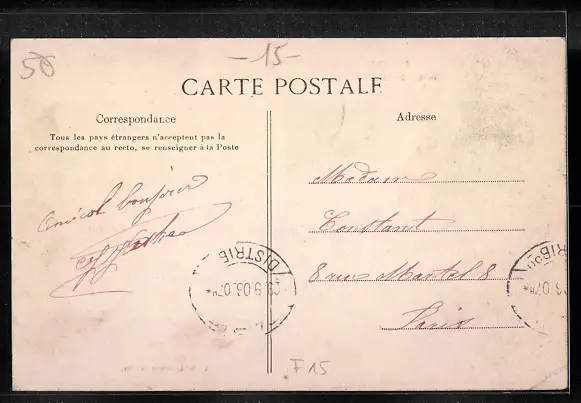 50
-15-
CARTE POSTALE
Correspondance
Tous les pays étrangers n'acceptent pas la
correspondance au recto, se renseigner à la Poste
Amical bonjour
Adresse
Madame
Constant
8 rue Martel 8
Paris
DISTRIB
F15